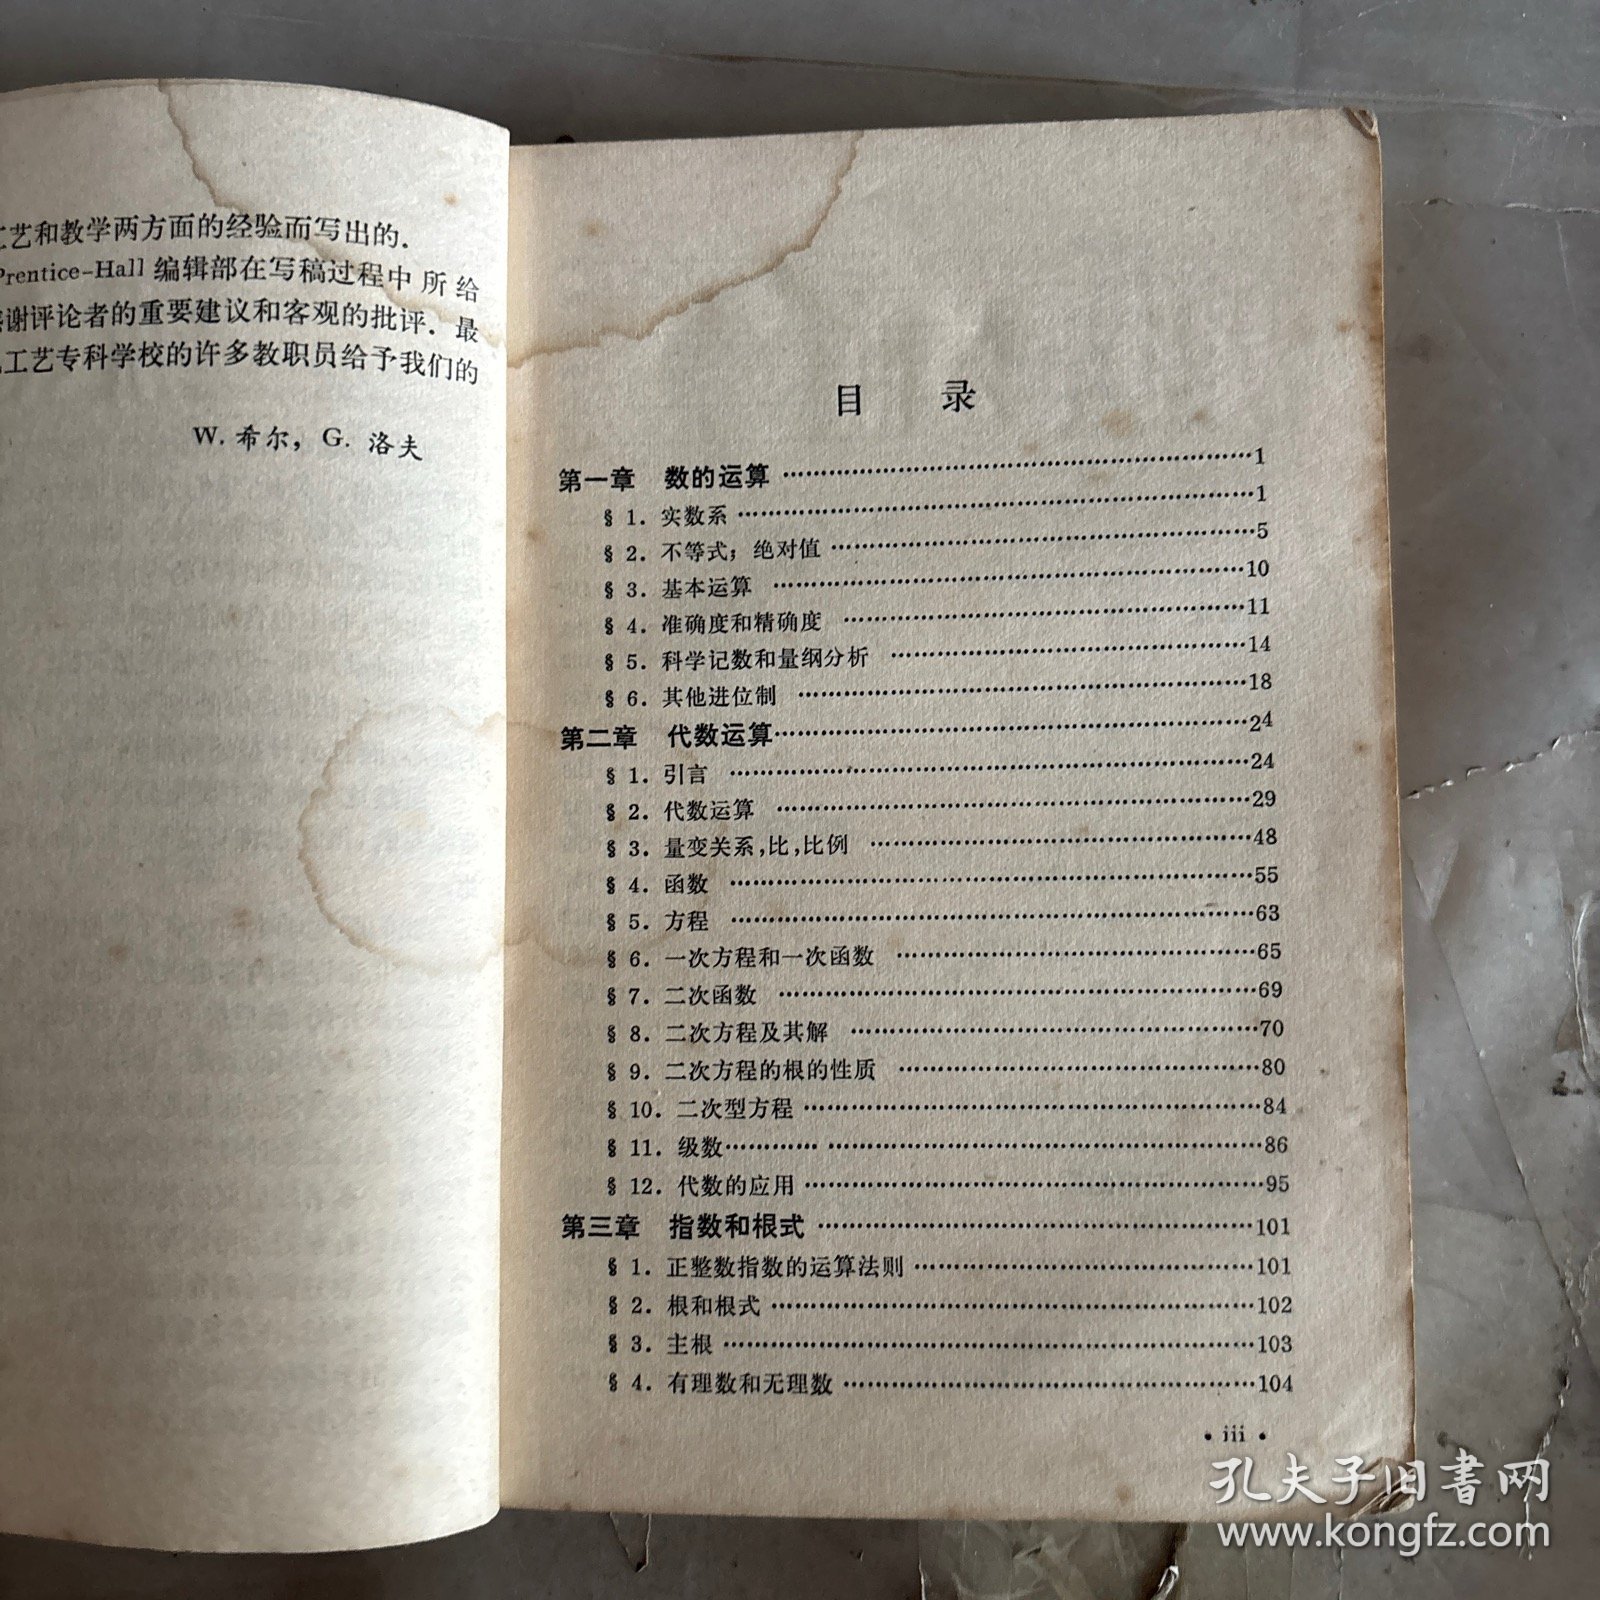 艺和教学两方面的经验而写出的.
Prentice-Hall 编辑部在写稿过程中所给
谢评论者的重要建议和客观的批评. 最
工艺专科学校的许多教职员给予我们的
W. 希尔, G. 洛夫
目 录
第一章 数的运算 ……………………………………………1
§ 1. 实数系 ……………………………………………1
§ 2. 不等式; 绝对值 ……………………………………………5
§ 3. 基本运算 ……………………………………………10
§ 4. 准确度和精确度 ……………………………………………11
§ 5. 科学记数和量纲分析 ……………………………………………14
§ 6. 其他进位制 ……………………………………………18
第二章 代数运算……………………………………………24
§ 1. 引言 ……………………………………………24
§ 2. 代数运算 ……………………………………………29
§ 3. 量变关系,比,比例 ……………………………………………48
§ 4. 函数 ……………………………………………55
§ 5. 方程 ……………………………………………63
§ 6. 一次方程和一次函数 ……………………………………………65
§ 7. 二次函数 ……………………………………………69
§ 8. 二次方程及其解 ……………………………………………70
§ 9. 二次方程的根的性质 ……………………………………………80
§ 10. 二次型方程 ……………………………………………84
§ 11. 级数……………………………………………86
§ 12. 代数的应用 ……………………………………………95
第三章 指数和根式 ……………………………………………101
§ 1. 正整数指数的运算法则 ……………………………………………101
§ 2. 根和根式 ……………………………………………102
§ 3. 主根 ……………………………………………103
§ 4. 有理数和无理数 ……………………………………………104
• iii •
孔夫子旧书网
www.kongfz.com